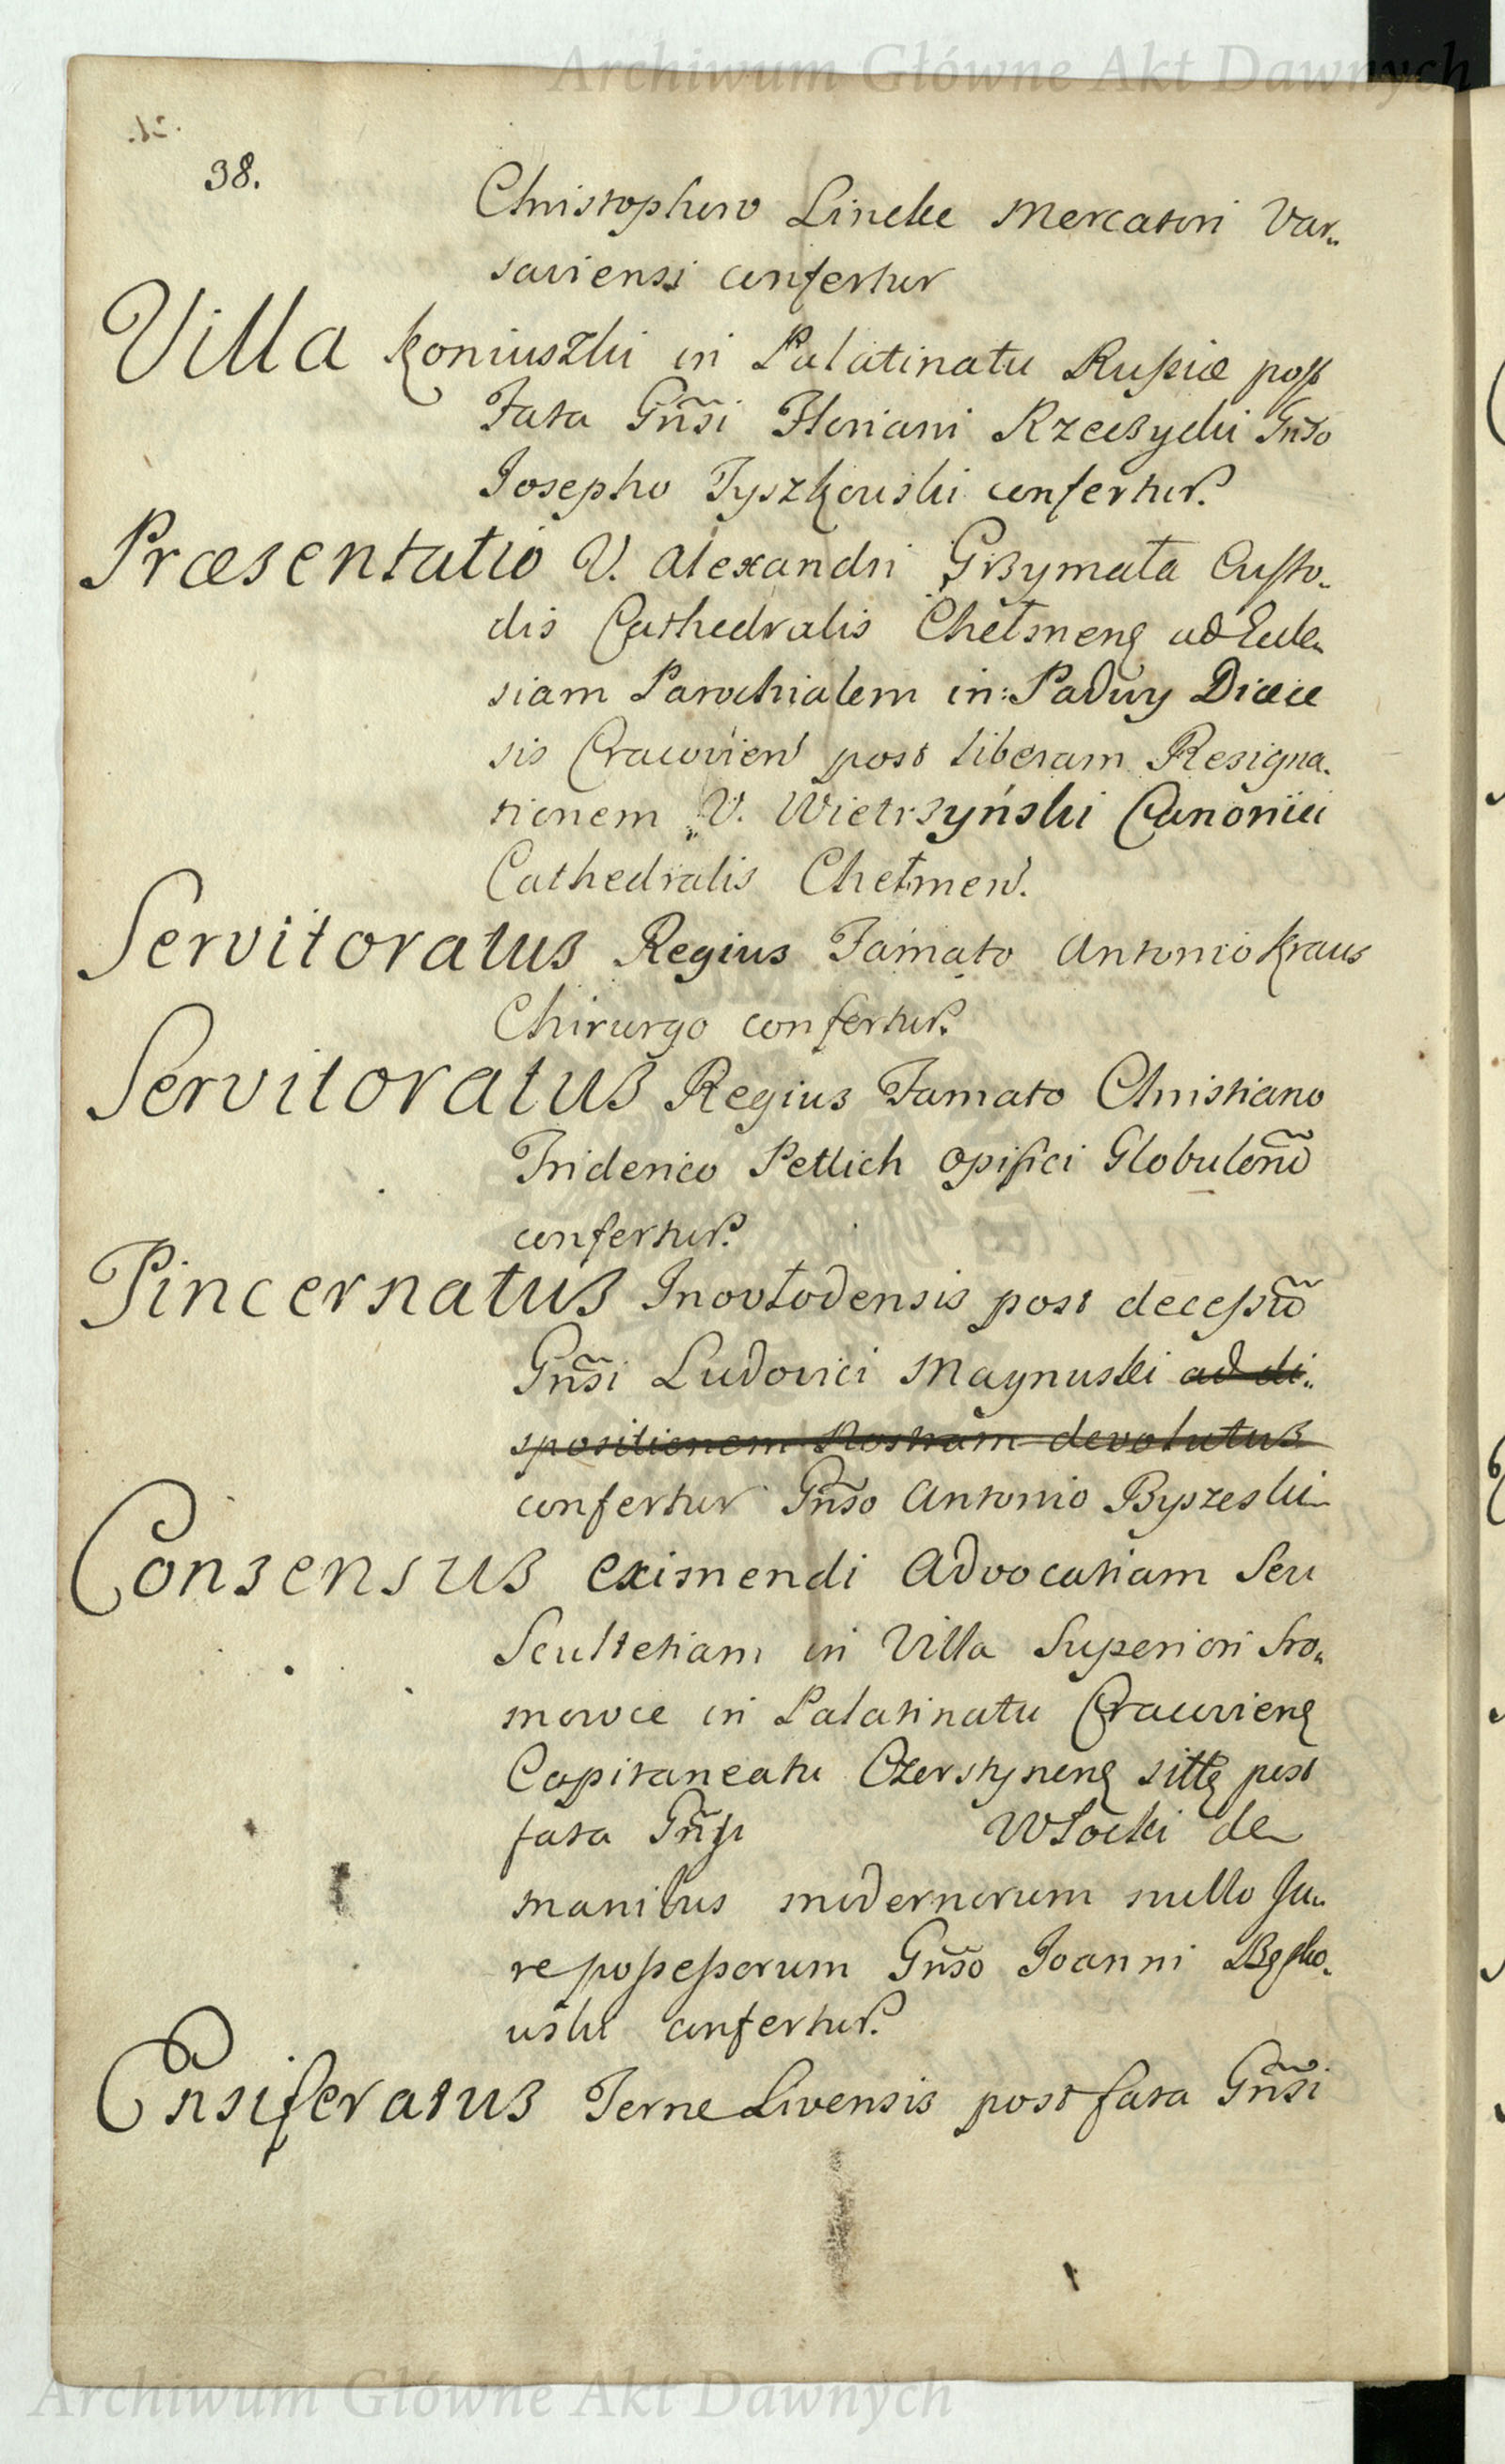 Archiwum Główne Akt Dawnych
38.
Christophoro Lincke Mercatori Var„
saviensi confertur
Villa Koniuszki in Palatinatu Russiæ post
Fata Gñsi Floriani Rzeczycki Gñso
Josepho Tyszkouski confertur.
Præsentatio V. Alexandri Grzymała Custo„
dis Cathedralis Chełmens ad Eccle„
siam Parochialem in: Padwy Diæce
sis Cracovien post liberam Resigna„
tionem V. Wietrzyński Canonici
Cathedralis Chełmen.
Servitoratus Regius Famato Antonio Kraus
Chirurgo confertur.
Servitoratus Regius Famato Christiano
Friderico Petlich Opifici Globulorũ
confertur.
Pincernatus Inovłodensis post decessũ
Gñsi Ludovici Magnuski ad di„
spositionem Nostram devolutus
confertur Gñso Antonio Byszeski
Consensus eximendi Advocatiam Seu
Scultetiam in Villa Superiori Sro„
mowce in Palatinatu Cracoviens
Capitaneatu Czorstynens sittæ post
fata Gñsi Włocki de
manibus modernorum nullo Ju„
re possessorum Gñso Joanni
uski confertur.
Ensiferatus Terræ Livensis post fata Gñsi
Archiwum Główne Akt Dawnych